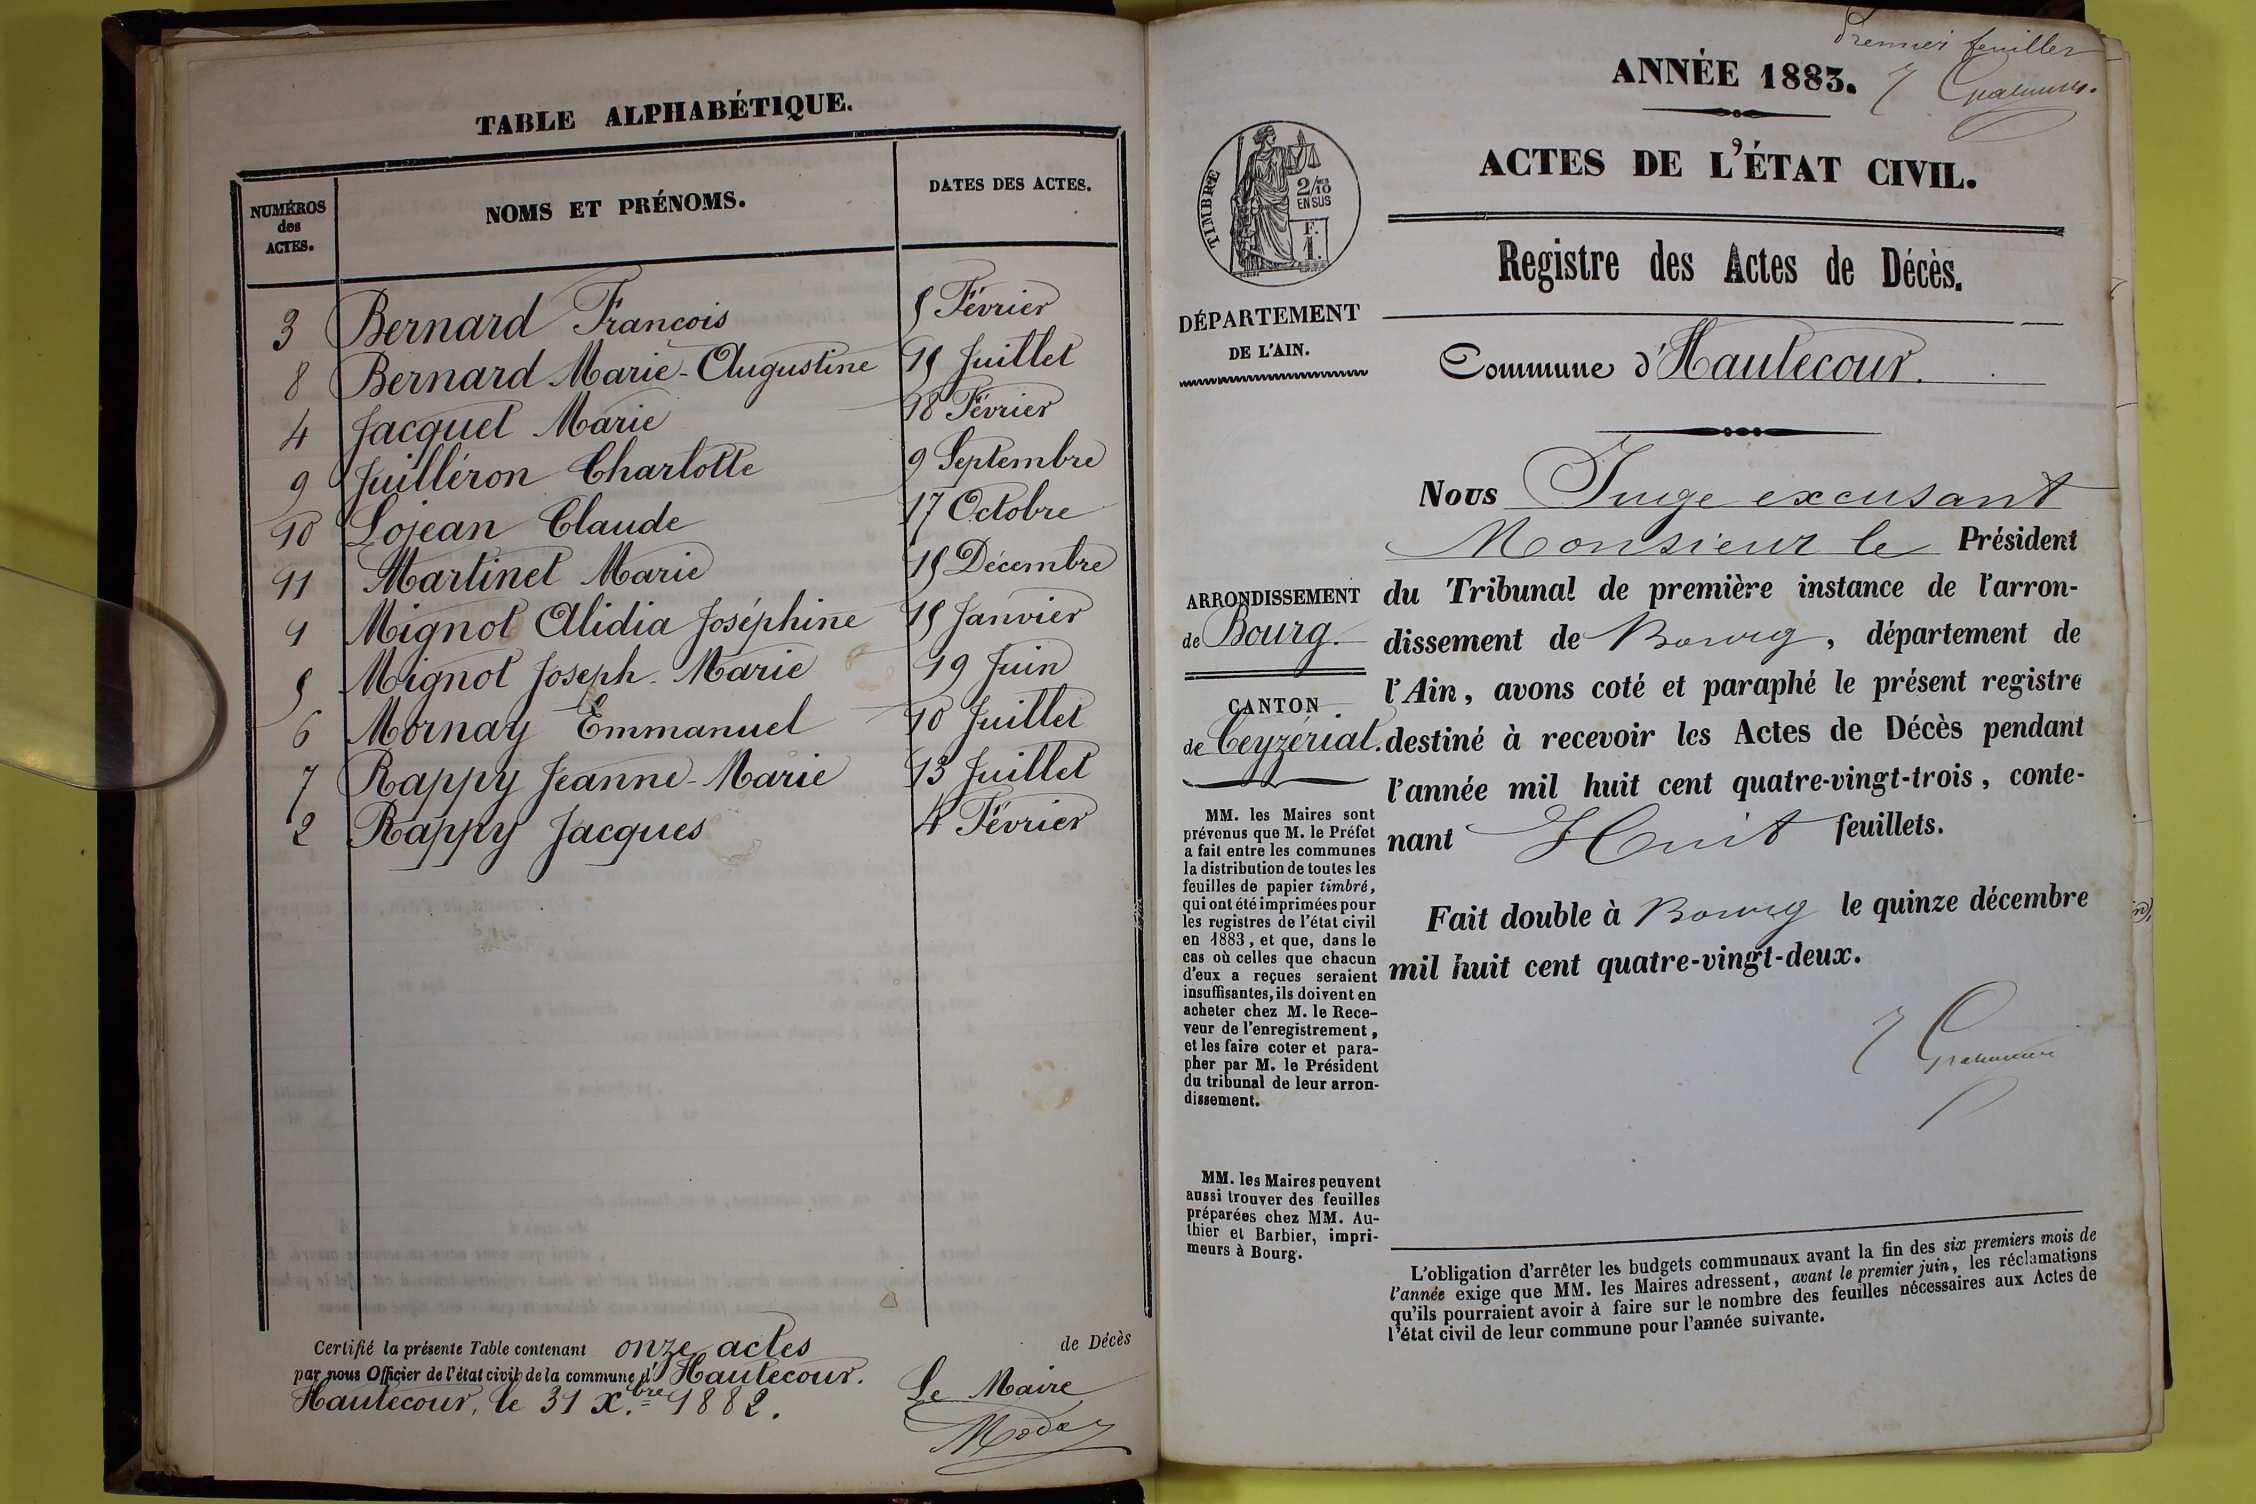 TABLE ALPHABÉTIQUE.
NUMÉROS des ACTES. NOMS ET PRÉNOMS. DATES DES ACTES.
3 Bernard Francois 5 Février
8 Bernard Marie-Augustine 15 Juillet
4 Jacquet Marie 18 Février
9 Juilléron Charlotte 9 Septembre
10 Lojean Claude 17 Octobre
11 Martinet Marie 15 Décembre
1 Mignot Alidia Joséphine 15 Janvier
5 Mignot Joseph-Marie 19 Juin
6 Mornay Emmanuel 10 Juillet
7 Rappy Jeanne-Marie 13 Juillet
2 Rappy Jacques 4 Février
Certifié la présente Table contenant onze actes de Décès
par nous Officier de l'état civil de la commune d'Hautecour.
Hautecour, le 31 X.bre 1882.
Le Maire
Premier feuillet
ANNÉE 1883.
ACTES DE L'ÉTAT CIVIL.
TIMBRE
2/10 MES
EN SUS
F.
1.
Registre des Actes de Décès.
DÉPARTEMENT
DE L'AIN.
Commune d'Hautecour.
Nous Juge excusant
Monsieur le Président
du Tribunal de première instance de l'arron-
dissement de Bourg, département de
l'Ain, avons coté et paraphé le présent registre
destiné à recevoir les Actes de Décès pendant
l'année mil huit cent quatre-vingt-trois, conte-
nant Huit feuillets.
Fait double à Bourg le quinze décembre
mil huit cent quatre-vingt-deux.
ARRONDISSEMENT
de Bourg.
CANTON
de Ceyzériat.
MM. les Maires sont
prévenus que M. le Préfet
a fait entre les communes
la distribution de toutes les
feuilles de papier timbré,
qui ont été imprimées pour
les registres de l'état civil
en 1883, et que, dans le
cas où celles que chacun
d'eux a reçues seraient
insuffisantes, ils doivent en
acheter chez M. le Rece-
veur de l'enregistrement,
et les faire coter et para-
pher par M. le Président
du tribunal de leur arron-
dissement.
MM. les Maires peuvent
aussi trouver des feuilles
préparées chez MM. Au-
thier et Barbier, impri-
meurs à Bourg.
L'obligation d'arrêter les budgets communaux avant la fin des six premiers mois de
l'année exige que MM. les Maires adressent, avant le premier juin, les réclamations
qu'ils pourraient avoir à faire sur le nombre des feuilles nécessaires aux Actes de
l'état civil de leur commune pour l'année suivante.